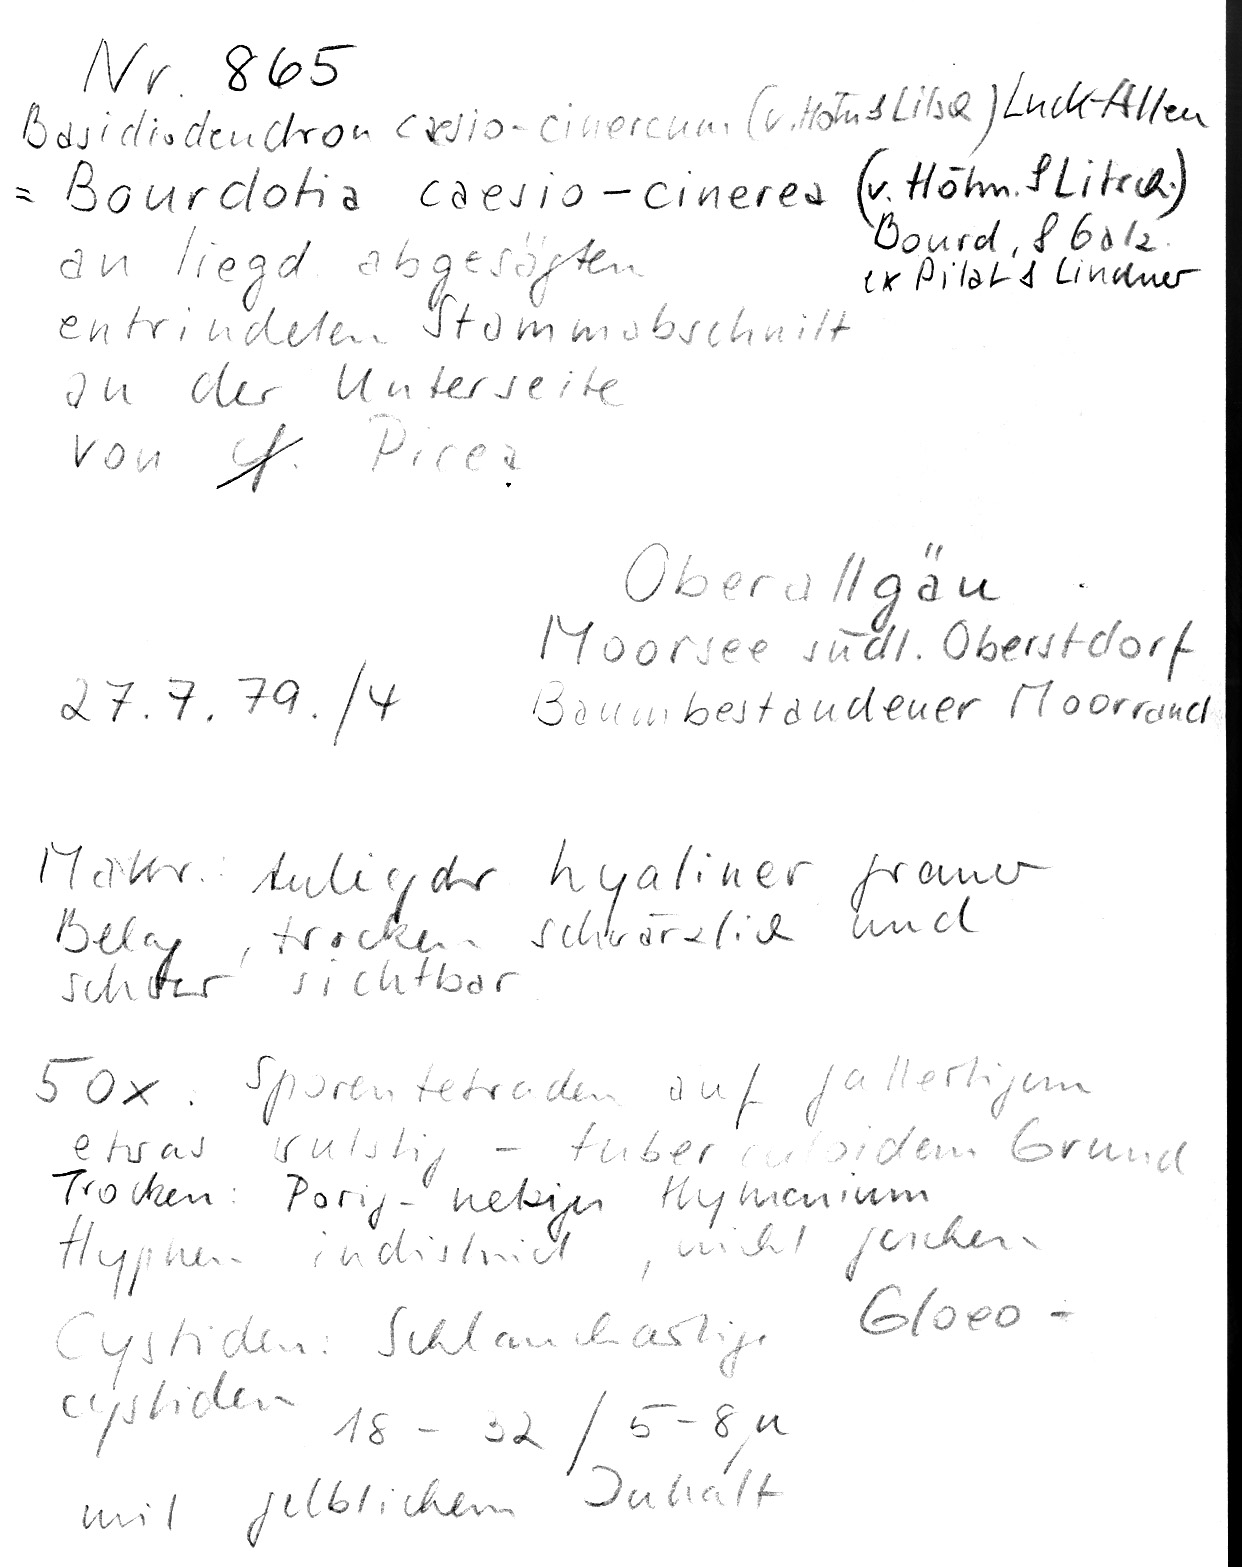 Nr. 865
Basidiodendron caesio-cinereum (v. Höhn & Litsch) Luck-Allen
= Bourdotia caesio-cinerea (v. Höhn. & Litsch.)
Bourd. & Galz.
ex Pilat & Lindner
an liegd. abgesägten
entrindeten Stammabschnitt
an der Unterseite
von Picea
Oberallgäu
Moorsee südl. Oberstdorf
27.7.79./4 Baumbestandener Moorrand
Makr.: hyaliner grauer
Belag, trocken schwärzlich und
schwer sichtbar
50x: Sporentetraden auf gallertigem
etwas wulstig - tuberculoidem Grund
Trocken: Porig-netziges Hymenium
Hyphen indistinct, nicht gesehen
Cystiden: Schlauchartige Gloeo-
cystiden
18 - 32 / 5-8 µ
mit gelblichem Inhalt